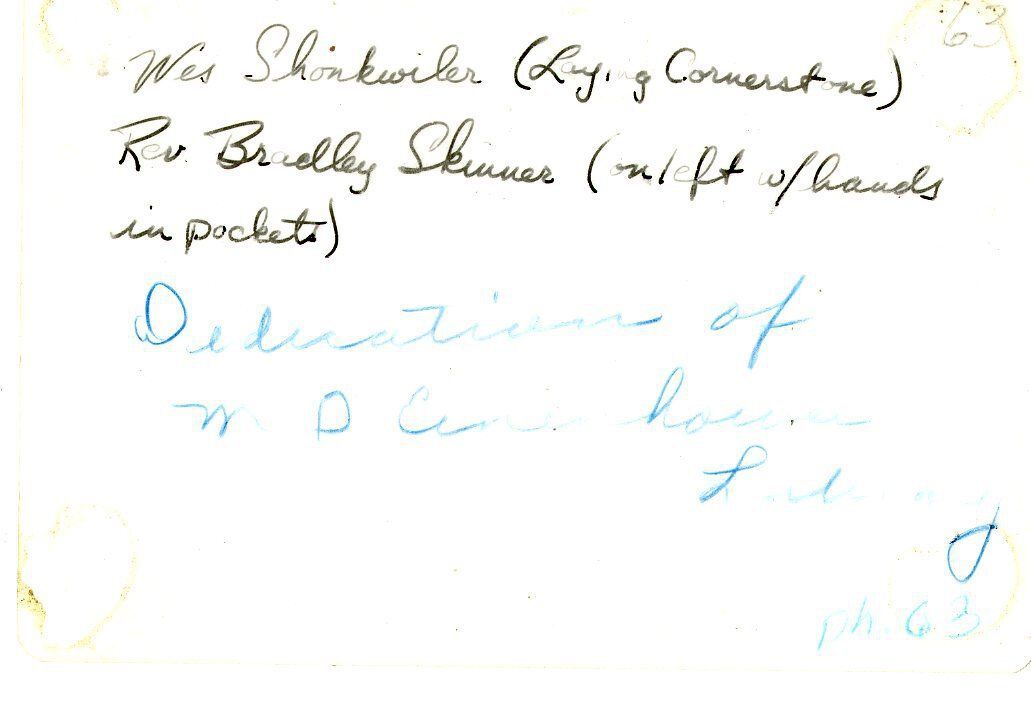 63
Wes Shonkwiler (Laying Cornerstone)
Rev. Bradley Skinner (on left w/hands
in pockets)
Dedication of
M D Eisenhower
Library
ph. 63